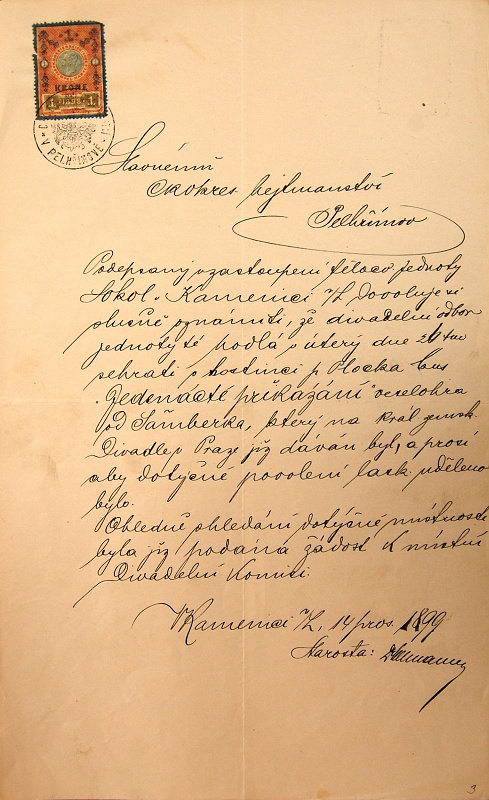 1
KRONE
1 1898 1
V PELHŘIMOVĚ
Slavnému
C k okres hejtmanství
Pelhřimov
Podepsaný v zastoupení tělocv jednoty
Sokol v Kamenici n/L dovoluje si
slušně oznámiti, že divadelní odbor
jednoty té hodlá v úterý dne 26 t m
sehráti v hostinci p Plocka kus
"Jedenácté přikázání" veselohra
od Šamberka, který na král zemsk.
Divadle v Praze již dáván byl, a prosí
aby dotyčné povolení lask. uděleno
bylo.
Ohledně shledání dotyčné místnosti
byla již podána žádost k místní
Divadelní komisi.
V Kamenici n/L, 14 pros. 1899
Starosta:
3